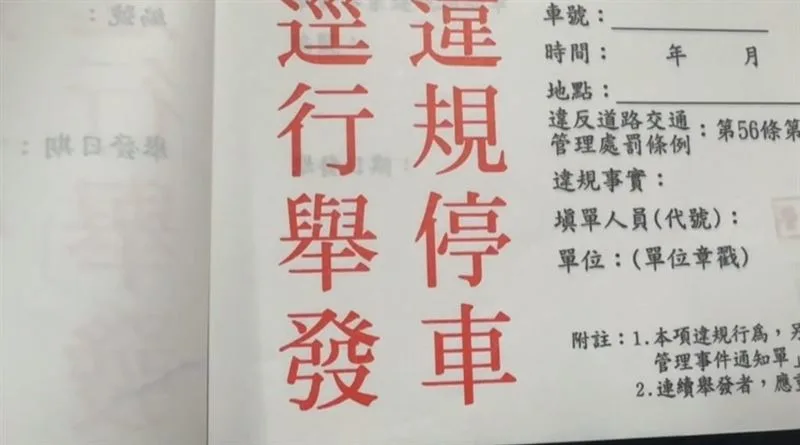 違規停車
逕行舉發
車號：
時間：　年　月
地點：
違反道路交通
管理處罰條例：第56條第
違規事實：
填單人員(代號)：
單位：(單位章戳)
附註：1.本項違規行為，另
管理事件通知單」
2.連續舉發者，應
編號：
舉發日期：